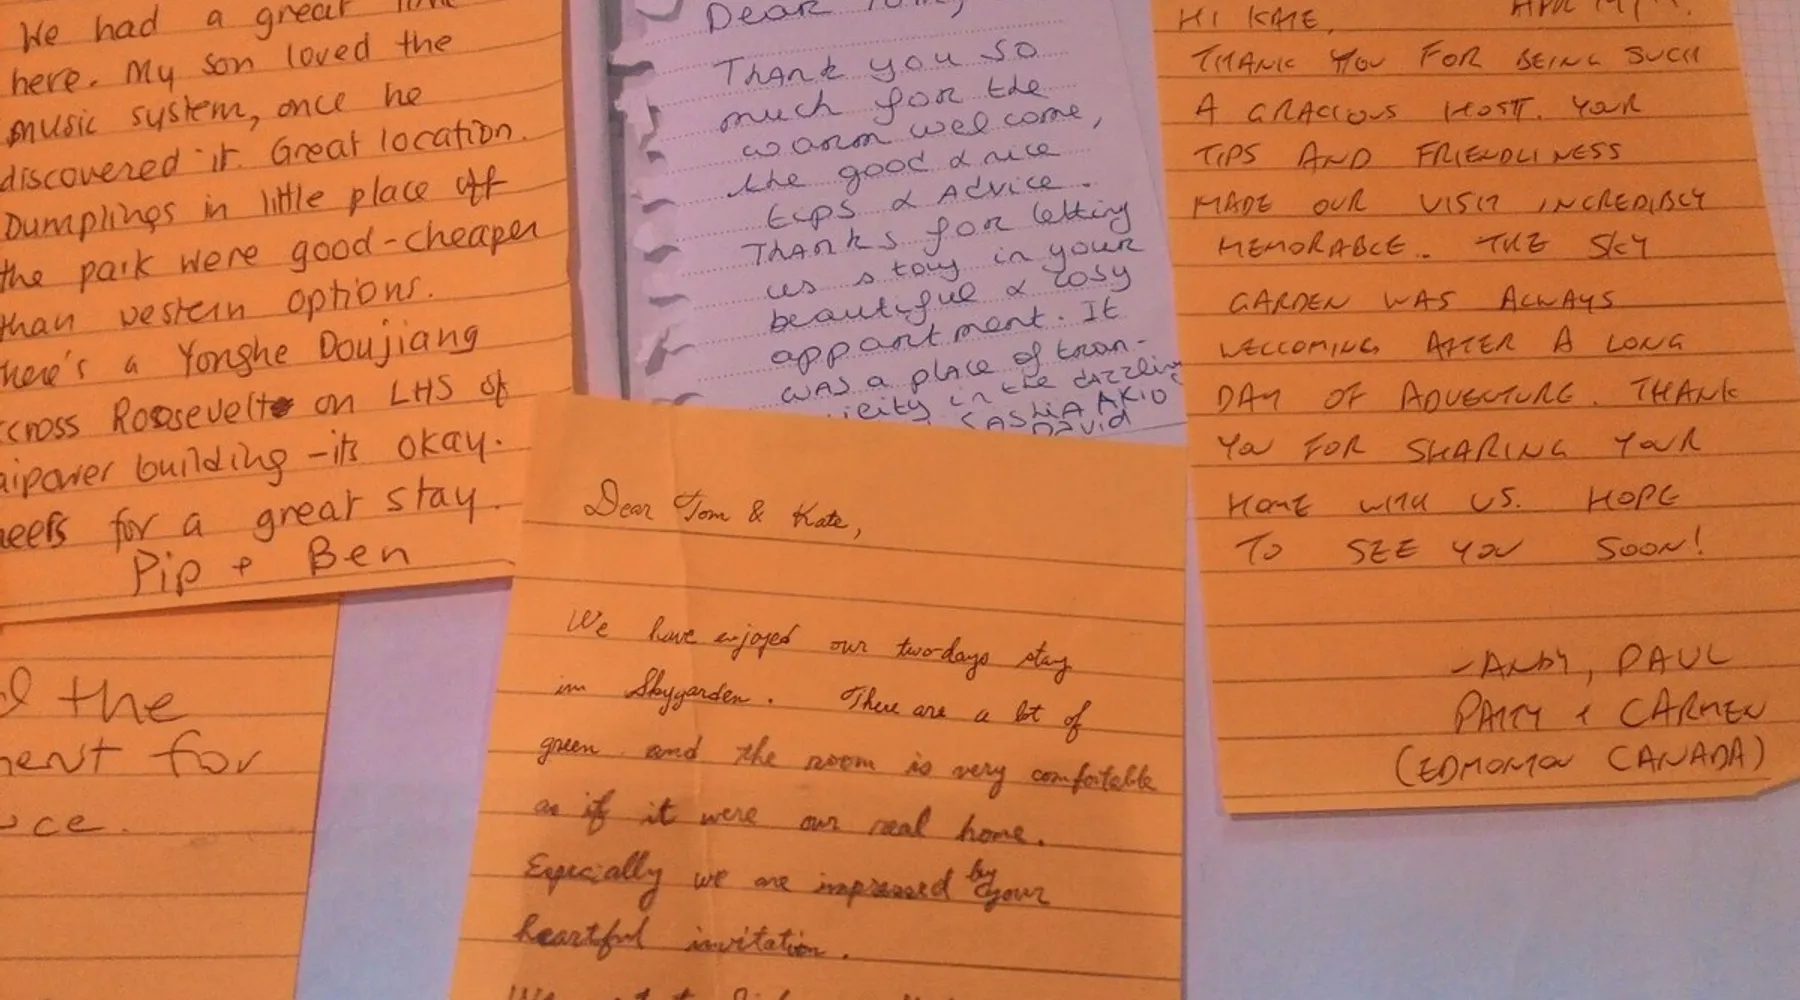 We had a great time
here. My son loved the
music system, once he
discovered it. Great location.
Dumplings in little place off
the park were good-cheaper
than western options.
here's a Yonghe Doujiang
cross Roosevelt on LHS of
aipower building - its okay.
heers for a great stay.
Pip + Ben
the
ment for
ce.
Dear
Thank you so
much for the
warm welcome,
the good & nice
tips & Advice.
Thanks for letting
us stay in your
beautiful & cosy
appartment. It
was a place of tran-
icity in the dazzling
SASHA AKIO
David
Dear Tom & Kate,
We have enjoyed our two-days stay
in Skygarden. There are a lot of
green and the room is very comfortable
as if it were our real home.
Especially we are impressed by your
heartful invitation.
HI KATE,
THANK YOU FOR BEING SUCH
A GRACIOUS HOST. YOUR
TIPS AND FRIENDLINESS
MADE OUR VISIT INCREDIBLY
MEMORABLE. THE SKY
GARDEN WAS ALWAYS
WELCOMING AFTER A LONG
DAY OF ADVENTURE. THANK
YOU FOR SHARING YOUR
HOME WITH US. HOPE
TO SEE YOU SOON!
-ANDY, PAUL
PATTY + CARMEN
(EDMONTON CANADA)